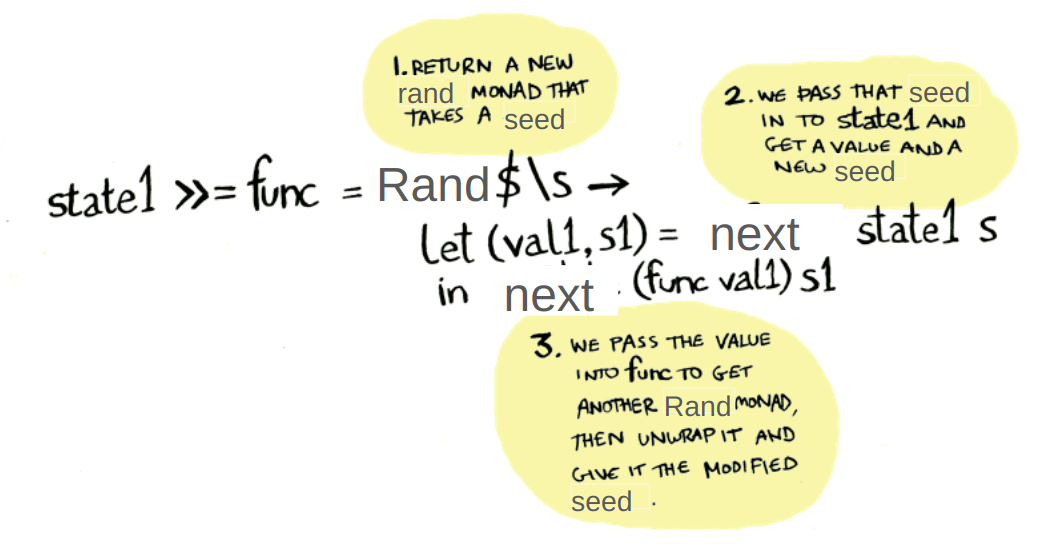 1. RETURN A NEW
rand MONAD THAT
TAKES A seed
2. WE PASS THAT seed
IN TO state1 AND
GET A VALUE AND A
NEW seed
state1 >>= func = Rand $ \s →
let (val1, s1) = next state1 s
in next (func val1) s1
3. WE PASS THE VALUE
INTO func TO GET
ANOTHER Rand MONAD,
THEN UNWRAP IT AND
GIVE IT THE MODIFIED
seed .